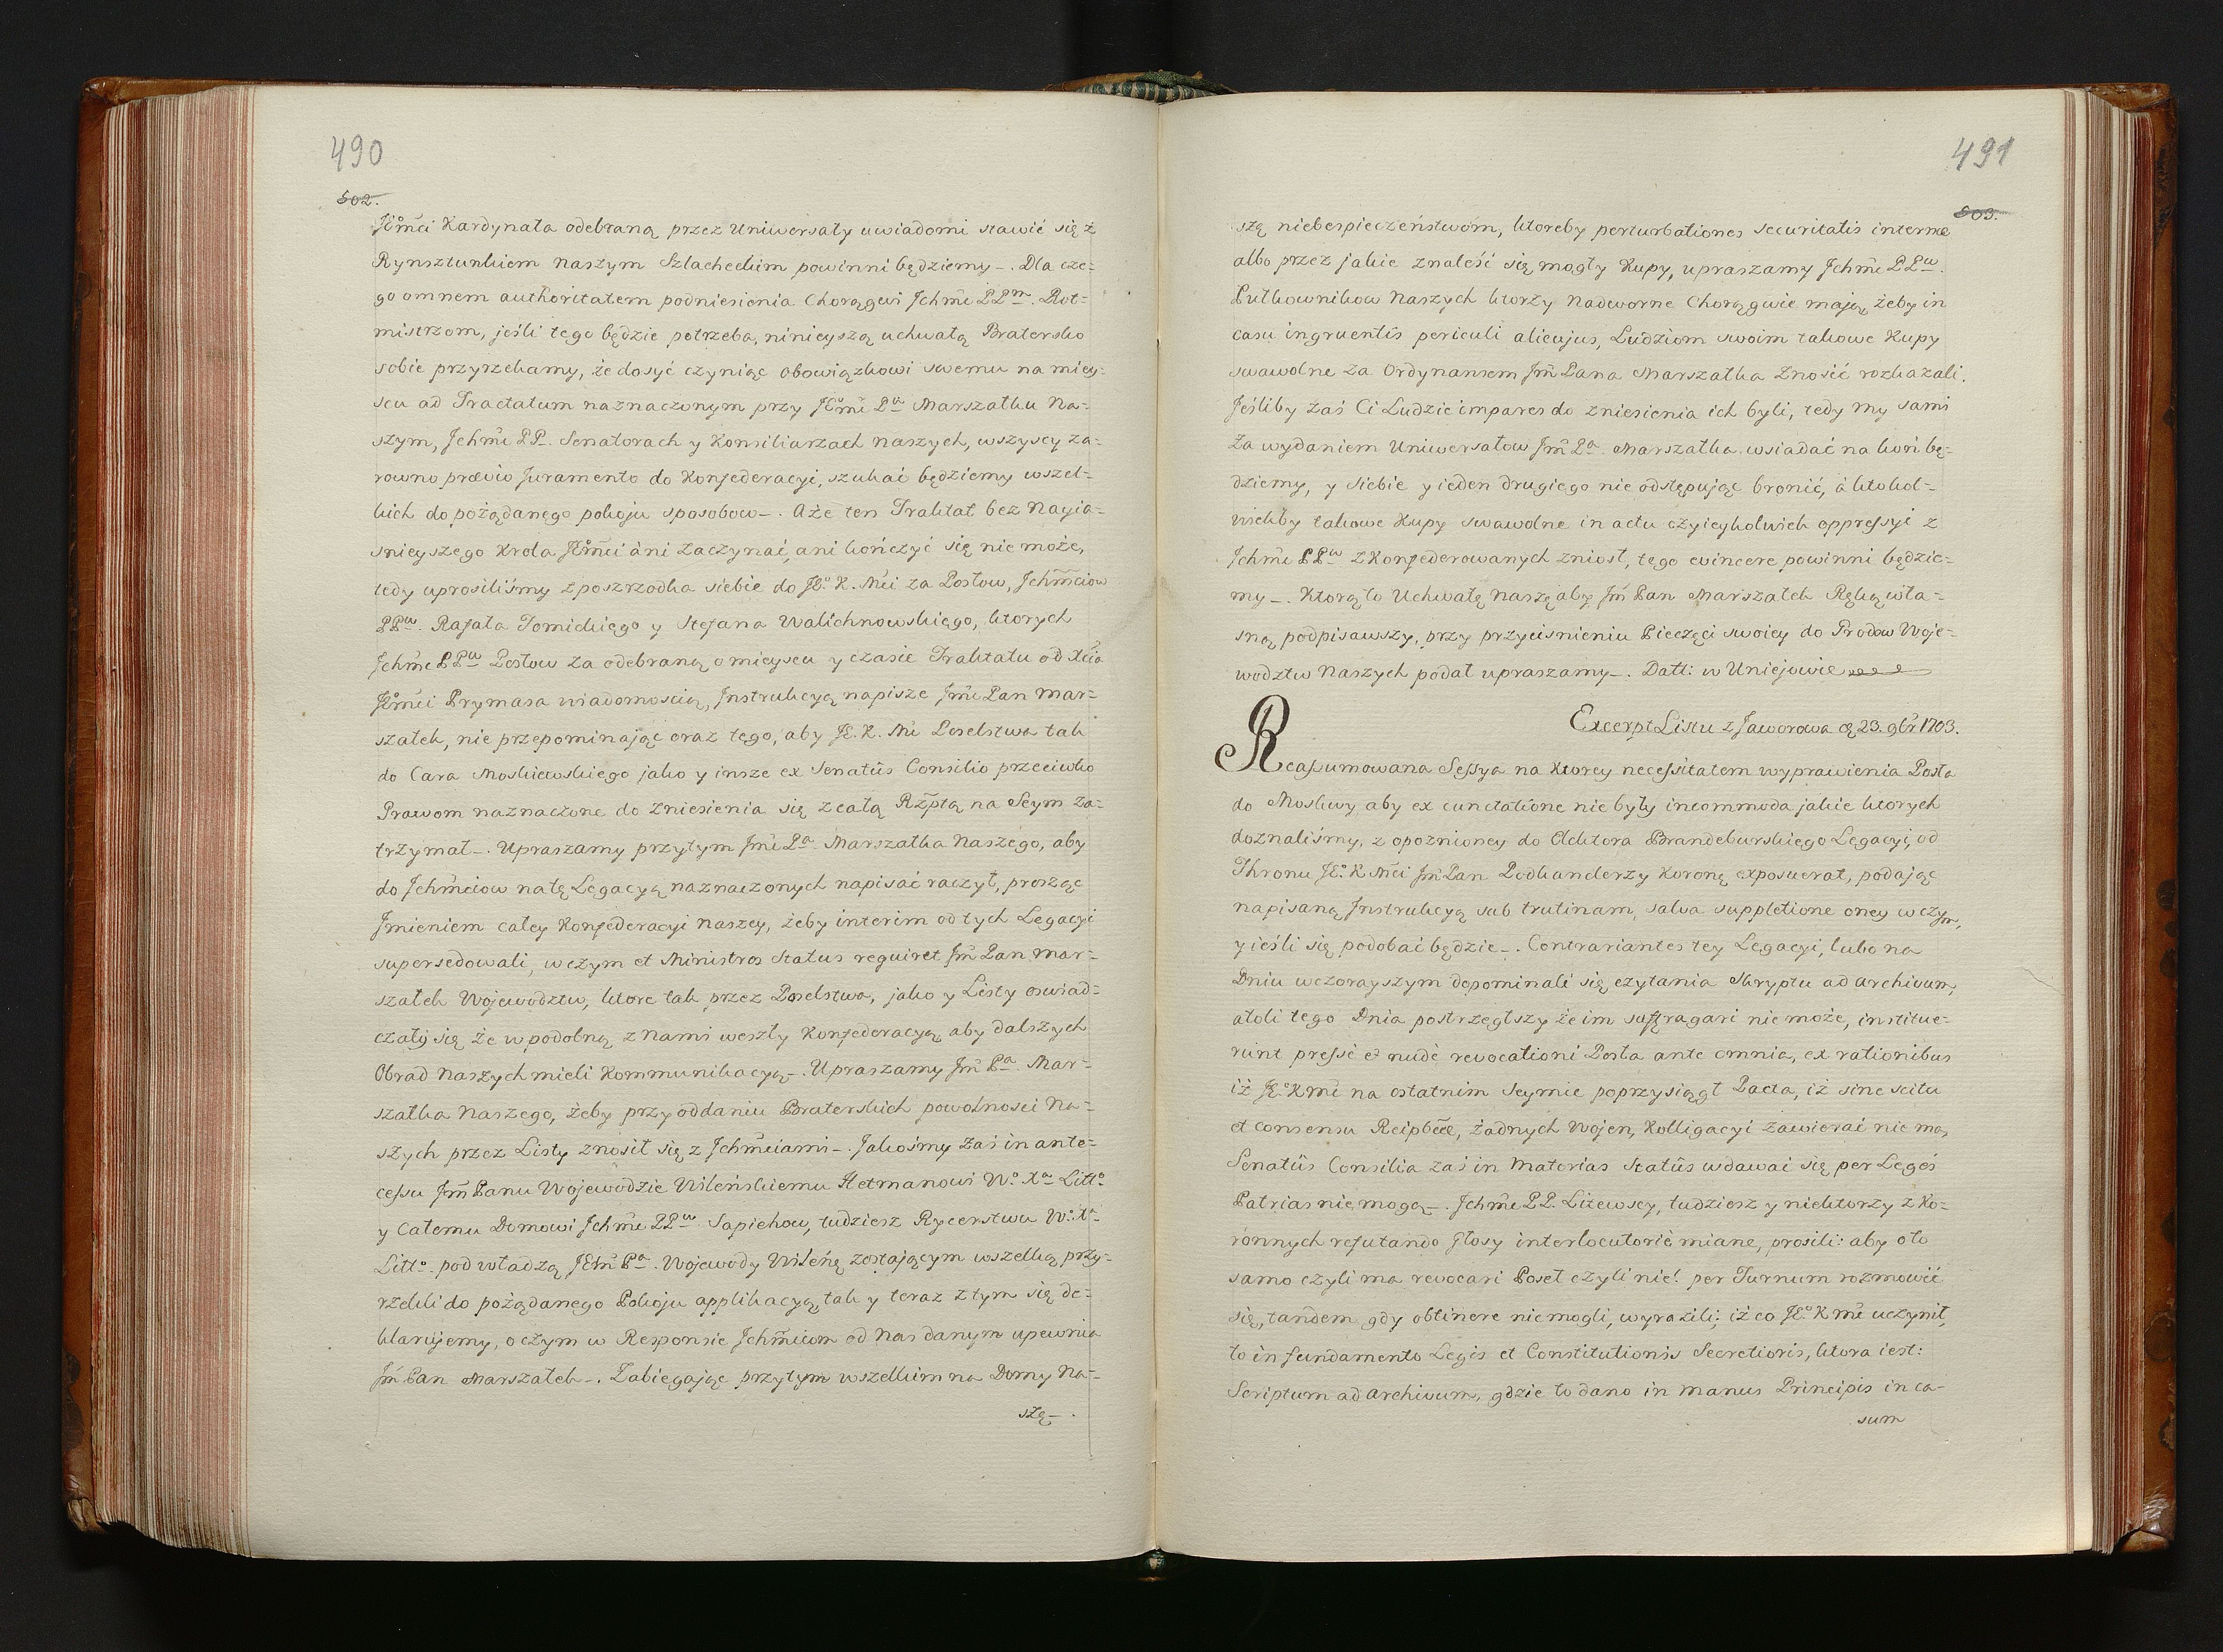 490
502.
JEm̃ci Kardynała odebraną przez Uniwersały uwiadomi stawić się z
Rynsztunkiem naszym Szlacheckim powinni będziemy_. Dla cze=
go omnem authoritatem podniesienia Chorągwi Jchm̃c PPm. Rot=
mistrzom, jeśli tego będzie potrzeba, ninieyszą uchwałą Bratersko
sobie przyrzekamy, że dosyć czyniąc obowiązkowi swemu na miey=
scu ad Tractatum naznaczonym przy JEm̃c Pa Marszałku Na=
szym, Jchm̃c PP. Senatorach y Konsiliarzach naszych, wszyscy za=
rowno prævio Juramento do Konfederacyi, szukać będziemy wszel=
kich do pożądanego pokoju sposobow_. A że ten Traktat bez Nayia=
snieyszego Krola JEm̃ci áni zaczynać, ani kończyć się nie może,
tedy uprosiliśmy z poszrzodka siebie do JEo. K. Mći za Posłow, Jchm̃ciow
PPw. Rafała Tomickięgo y Stefana Walichnowskięgo, ktorych
Jchm̃c PPw Posłow za odebraną o mieyscu y czasie Traktatu od Xcia
JEm̃ci Prymasa wiadomoscią, Jnstrukcyą napisze Jm̃c Pan Mar=
szałek, nie przepominając oraz tęgo, aby JE. K. Mć Poselstwa tak
do Cara Moskiewskiego jako y insze ex Senatûs Consilio przeciwko
Prawom naznaczone do zniesienia się z całą Rz̃ptą na Seym za=
trzymał_. Upraszamy przytym Jm̃c Pa Marszałka Naszęgo, aby
do Jchm̃ciow na tę Legacyą naznaczonych napisać raczył, prosząc
Jmieniem całey Konfederacyi naszey, żeby interim od tych Legacyi
supersedowali, w czym et Ministros Status requiret Jm̃ Pan Mar=
szałek Wojewodztw, ktore tak przez Poselstwa, jako y Listy oswiad=
czały się że w podobną z nami weszły Konfederacyą aby dalszych
Obrad Naszych mieli Kommunikacyą_. Upraszamy Jm̃ Pa. Mar=
szałka Naszego, żeby przy oddaniu Braterskich powolnosci Na=
szych przez Listy znosił się z Jchm̃ciami_. Jakośmy zaś in ante=
cessu Jm̃ Panu Wojewodzie Wileńskiemu Hetmanowi Wo. Xa Litto
y Całemu Domowi Jchm̃c PPw Sapiehow, tudziesz Rycerstwu Wo. Xa.
Litto. pod władzą JEm̃ Pa. Wojewody Wileńę zostającym wszelką przy=
rzekli do pożądanego Pokoju applikacyą, tak y teraz z tym się de=
klarujemy, o czym w Responsie Jchm̃ciom od Nas danym upewnia
Jm̃ Pan Marszałek_. Zabiegając przytym wszelkim na Domy Na=
szę_.
491
503.
szę niebespieczeństwom, ktoreby perturbationes securitatis internæ
albo przez jakie znaleść się mogły Kupy, upraszamy Jchm̃c PPw.
Pułkownikow Naszych ktorzy Nadworne Chorągwie mają, żeby in
casu ingruentis periculi alicujus, Ludziom swoim takowe Kupy
swawolne za Ordynansem Jm̃ Pana Marszałka Znosić rozkazali.
Jeśliby zaś Ci Ludzie impares do zniesienia ich byli, tedy my sami
za wydaniem Uniwersałow Jm̃ Pa. Marszałka wsiadać na koń bę=
dziemy, y siebie y ieden drugiego nie odstępując bronić, á ktokol=
wiekby takowe Kupy swawolne in actu czyicykolwiek oppressyi z
Jchm̃c PPw zKonfederowanych zniosł, tego evincere powinni będzie=
my_. Ktorą to Uchwałę naszę aby Jm̃ Pan Marszałek Ręką wła=
sną podpisawszy, przy przycisnieniu Pieczęci swoiey do Grodow Woje=
wodztw Naszych podał upraszamy_. Datt: w Uniejowie
Excerpt Listu z Jaworowa d. 23. 9br̃ 1703.
Reassumowana Sessya na Ktorey necessitatem wyprawienia Posła
do Moskwy, aby ex cunctatione nie były incommoda jakie ktorych
doznaliśmy, z opoznioney do Elektora Brandeburskiego Legacyi, od
Thronu JEo. K. Mći Jm̃ Pan Podkanclerzy Koronę exposuerat, podając
napisaną Jnstrukcyą sub trutinam, salva suppletione oney w czym,
y ieśli się podobać będzie_. Contrariantes tey Legacyi, lubo na
Dniu wczorayszym depominali się czytania Skryptu ad Archivum,
atoli tego Dnia postrzegłszy że im suffragari nie może, institue=
runt pressè et nudè revocationi Posła ante omnia, ex rationibus
iż JEo. K mć na ostatnim Seymie poprzysiągł Pacta, iż sine scitu
et consensu Reipb̃cæ, żadnych Wojen, Kolligacyi zawierać nie ma,
Senatûs Consilia zaś in Materias Statûs wdawać się per Leges
Patrias nie mogą_. Jchm̃c PP. Litewscy, tudziesz y niektorzy z Ko=
ronnych refutando głosy interlocutoriè miane, prosili: aby o to
samo czyli ma revocari Poseł czyli nie? per Turnum rozmowić
się, tandem gdy obtinere nie mogli, wyrazili; iż co JEo. K mć uczynił,
to in fundamento Legis et Constitutionis Secretioris, ktora iest:
Scriptum ad Archivum, gdzie to dano in manus Principis in ca-
sum